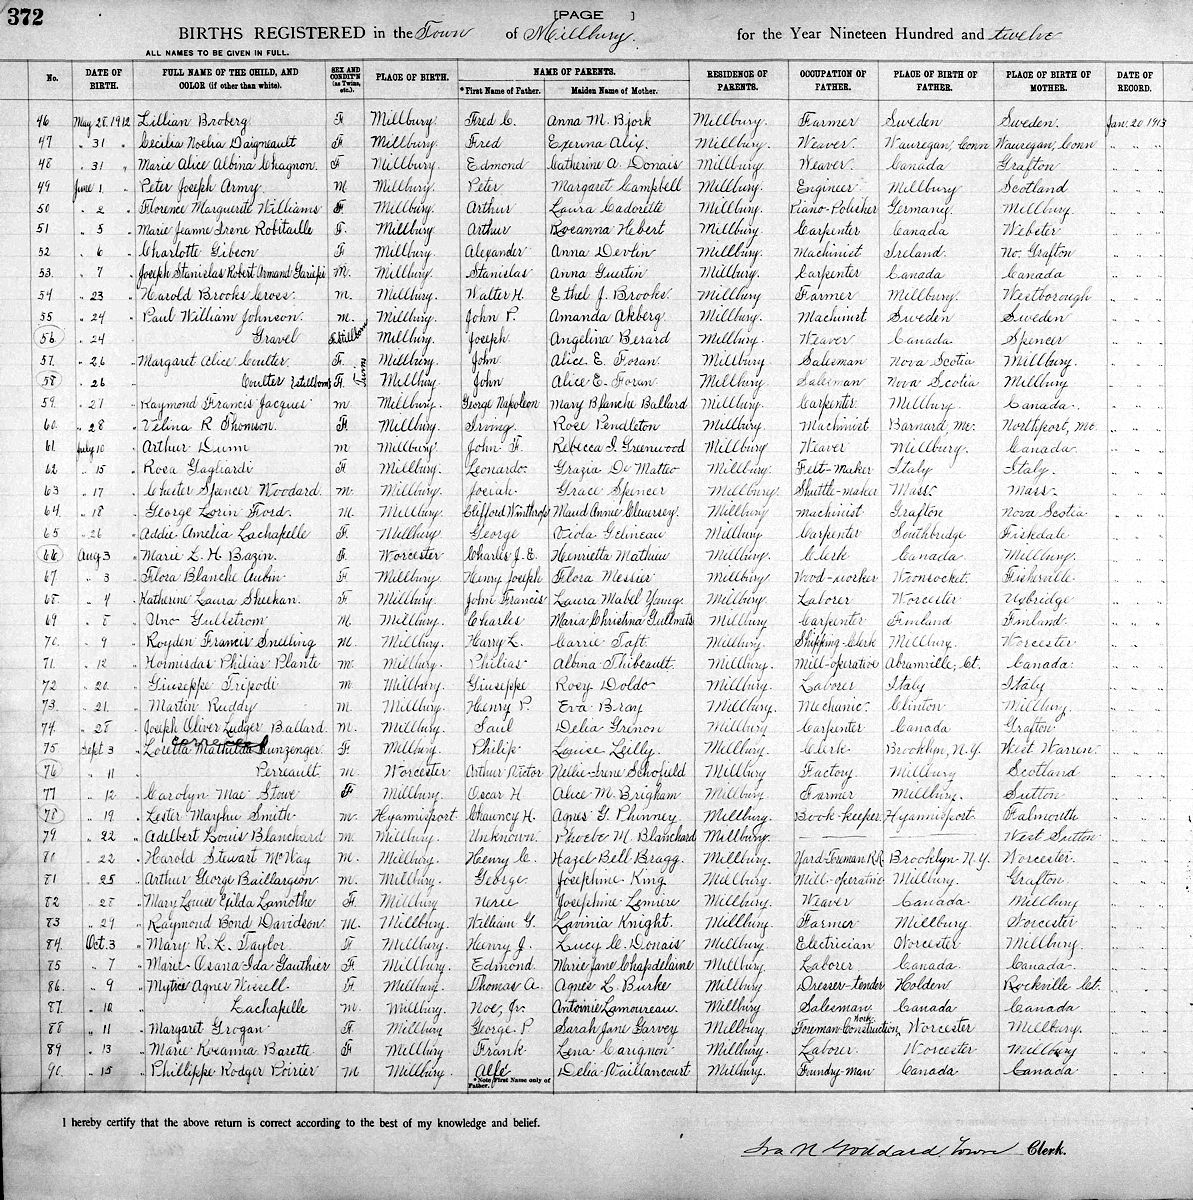 372
[PAGE ]
BIRTHS REGISTERED in the Town of Millbury. for the Year Nineteen Hundred and twelve
ALL NAMES TO BE GIVEN IN FULL.
No. DATE OF BIRTH. FULL NAME OF THE CHILD, AND COLOR (if other than white). SEX AND CONDIT'N (as Twins, etc.). PLACE OF BIRTH. NAME OF PARENTS. *First Name of Father. Maiden Name of Mother. RESIDENCE OF PARENTS. OCCUPATION OF FATHER. PLACE OF BIRTH OF FATHER. PLACE OF BIRTH OF MOTHER. DATE OF RECORD.
46 May 28, 1912 Lillian Broberg F Millbury. Fred C. Anna M. Bjork Millbury. Farmer Sweden Sweden. Jan. 20 1913
47 " 31 " Cecilia Noelia Daigneault F Millbury. Fred Exerina Alix Millbury. Weaver. Wauregan, Conn Wauregan, Conn " " "
48 " 31 " Marie Alice Albina Chagnon. F Millbury. Edmond Catherine A. Donais Millbury. Weaver. Canada Grafton " " "
49 June 1 " Peter Joseph Army. M Millbury. Peter Margaret Campbell Millbury. Engineer Millbury Scotland " " "
50 " 2 " Florence Marguerite Williams F. Millbury. Arthur Laura Cadorette Millbury. Piano-Polisher Germany Millbury " " "
51 " 5 " Marie Jeanne Irene Robitaille F. Millbury. Arthur Roseanna Hebert Millbury. Carpenter Canada Webster " " "
52 " 6 " Charlotte Gibson F Millbury. Alexander Anna Devlin Millbury. Machinist Ireland. No. Grafton " " "
53. " 7 " Joseph Stanislas Robert Armand Gariépi M. Millbury. Stanislas Anna Guertin Millbury. Carpenter Canada Canada " " "
54 " 23 " Harold Brooks Cross. M. Millbury. Walter H. Ethel J. Brooks. Millbury Farmer Millbury. Westborough " " "
55 " 24 " Paul William Johnson. M. Millbury. John P. Amanda Akberg. Millbury. Machinist Sweden Sweden " " "
56 " 24 " Gravel Stillborn Millbury. Joseph Angelina Berard Millbury. Weaver Canada Spencer " " "
57. " 26 " Margaret Alice Coulter. F. Twins Millbury. John. Alice E. Foran. Millbury Salesman Nova Scotia Millbury. " " "
58 " 26 " Coulter (stillborn) F. Millbury John Alice E. Foran. Millbury Salesman Nova Scotia Millbury " " "
59. " 27 " Raymond Francis Jacques M Millbury. George Napoleon Mary Blanche Ballard Millbury. Carpenter. Millbury. Canada. " " "
60. " 28 " Velina R Thomson. F Millbury. Irving. Rose Pendleton Millbury. Machinist Barnard, Me. Northport, Me. " " "
61. July 10 " Arthur Dunn M Millbury. John F. Rebecca I. Greenwood Millbury Weaver Millbury. Canada. " " "
62 " 15 " Rosa Gagliardi F Millbury. Leonardo. Grazia De Matteo Millbury. Felt-maker Italy Italy. " " "
63 " 17 " Chester Spencer Woodard. M. Millbury. Josiah Grace Spencer Millbury. Shuttle-maker Mass. Mass. " " "
64 " 18 " George Lorin Ford. M. Millbury. Clifford Winthrop Maud Annie Millbury Machinist Grafton Nova Scotia " " "
65 " 26 " Addie Amelia Lachapelle F. Millbury George Viola Gelineau Millbury. Carpenter Southbridge Fiskdale " " "
66 Aug 3 " Marie L. H. Bazin. F. Worcester Charles J. E. Henrietta Mathieu Millbury. Clerk Canada Millbury. " " "
67 " 3 " Flora Blanche Aubin F Millbury. Henry Joseph Flora Messier Millbury Wood-worker Woonsocket. Fisherville " " "
68. " 4 " Katherine Laura Sheehan. F. Millbury. John Francis Laura Mabel Young. Millbury. Laborer Worcester Uxbridge " " "
69 " 8 " Uno Gullstrom M. Millbury. Charles Maria Christina Gullmets Millbury. Carpenter Finland Finland. " " "
70. " 9 " Royden Francis Snelling M. Millbury. Harry L. Carrie Taft. Millbury. Shipping-Clerk Millbury. Worcester " " "
71. " 12 " Hormisdas Philias Plante M. Millbury. Philias Albina Thibeault. Millbury. Mill-operative Ct. Canada. " " "
72 " 20. " Giuseppe Tripodi M. Millbury. Giuseppe Rosy Doldo Millbury. Laborer Italy Italy " " "
73. " 21. " Martin Ruddy M. Millbury. Henry P. Eva Bray Millbury. Mechanic. Clinton Millbury. " " "
74. " 28 " Joseph Oliver Ludger Ballard. M. Millbury. Saul Delia Grenon Millbury Carpenter Canada Grafton " " "
75 Sept 3 " Loretta Mathilda Gunzenger. F. Millbury. Philip. Louise Leilly. Millbury. Clerk. Brooklyn, N.Y. West Warren. " " "
76 " 11 " Perreault. M. Worcester Arthur Victor Nellie-Irene Schofield Millbury Factory. Millbury Scotland " " "
77 " 12 " Carolyn Mae Stowe F Millbury. Oscar H. Alice M. Brigham Millbury. Farmer Millbury. Sutton " " "
78 " 19 " Lester Mayhu Smith M. Hyannisport Chauncy H. Agnes G. Phinney Millbury. Book-keeper Hyannisport Falmouth " " "
79 " 22 " Adelbert Louis Blanchard M. Millbury. Unknown. Phoebe M. Blanchard Millbury. — — West Sutton " " "
80 " 22 " Harold Stewart McVay M. Millbury. Henry C. Hazel Bell Bragg. Millbury. Yard-Foreman R.R. Brooklyn N.Y. Worcester. " " "
81 " 25 " Arthur George Baillargeon. M. Millbury. George. Josephine King Millbury. Mill-operative Millbury. Grafton " " "
82 " 28 " Mary Louise Gilda Lamothe F. Millbury Neree Josephine Lemire Millbury. Weaver Canada Millbury " " "
83 " 29 " Raymond Bond Davidson M. Millbury William G. Lavinia Knight. Millbury. Farmer Millbury Worcester " " "
84. Oct. 3 " Mary R. K. Taylor F Millbury. Henry J. Lucy C. Donais Millbury. Electrician Worcester Millbury. " " "
85 " 7 " Marie Osana Ida Gauthier F. Millbury. Edmond. Marie Jane Chapdelaine Millbury. Laborer Canada. Canada. " " "
86. " 9 " Agnes Nissell F. Millbury. Thomas A. Agnes L. Burke Millbury. Dresser-tender Holden Rockville Ct. " " "
87. " 10 " Lachapelle M. Millbury Noe, Jr. Antoinie Lamoureau Millbury Salesman Canada Canada " " "
88 " 11 " Margaret Grogan F Millbury. George P. Sarah Jane Garvey Millbury. Foreman-Construction Work. Worcester Millbury. " " "
89 " 13 " Marie Roseanna Barette F Millbury. Frank Lena Carignon Millbury. Laborer Worcester Millbury " " "
90. " 15 " Phillippe Rodger Poirier M Millbury. Alfe Delia Vaillancourt Millbury. Foundry-man Canada Canada " " "
*Note, First Name only of Father.
I hereby certify that the above return is correct according to the best of my knowledge and belief.
Ira N Goddard, Town Clerk.